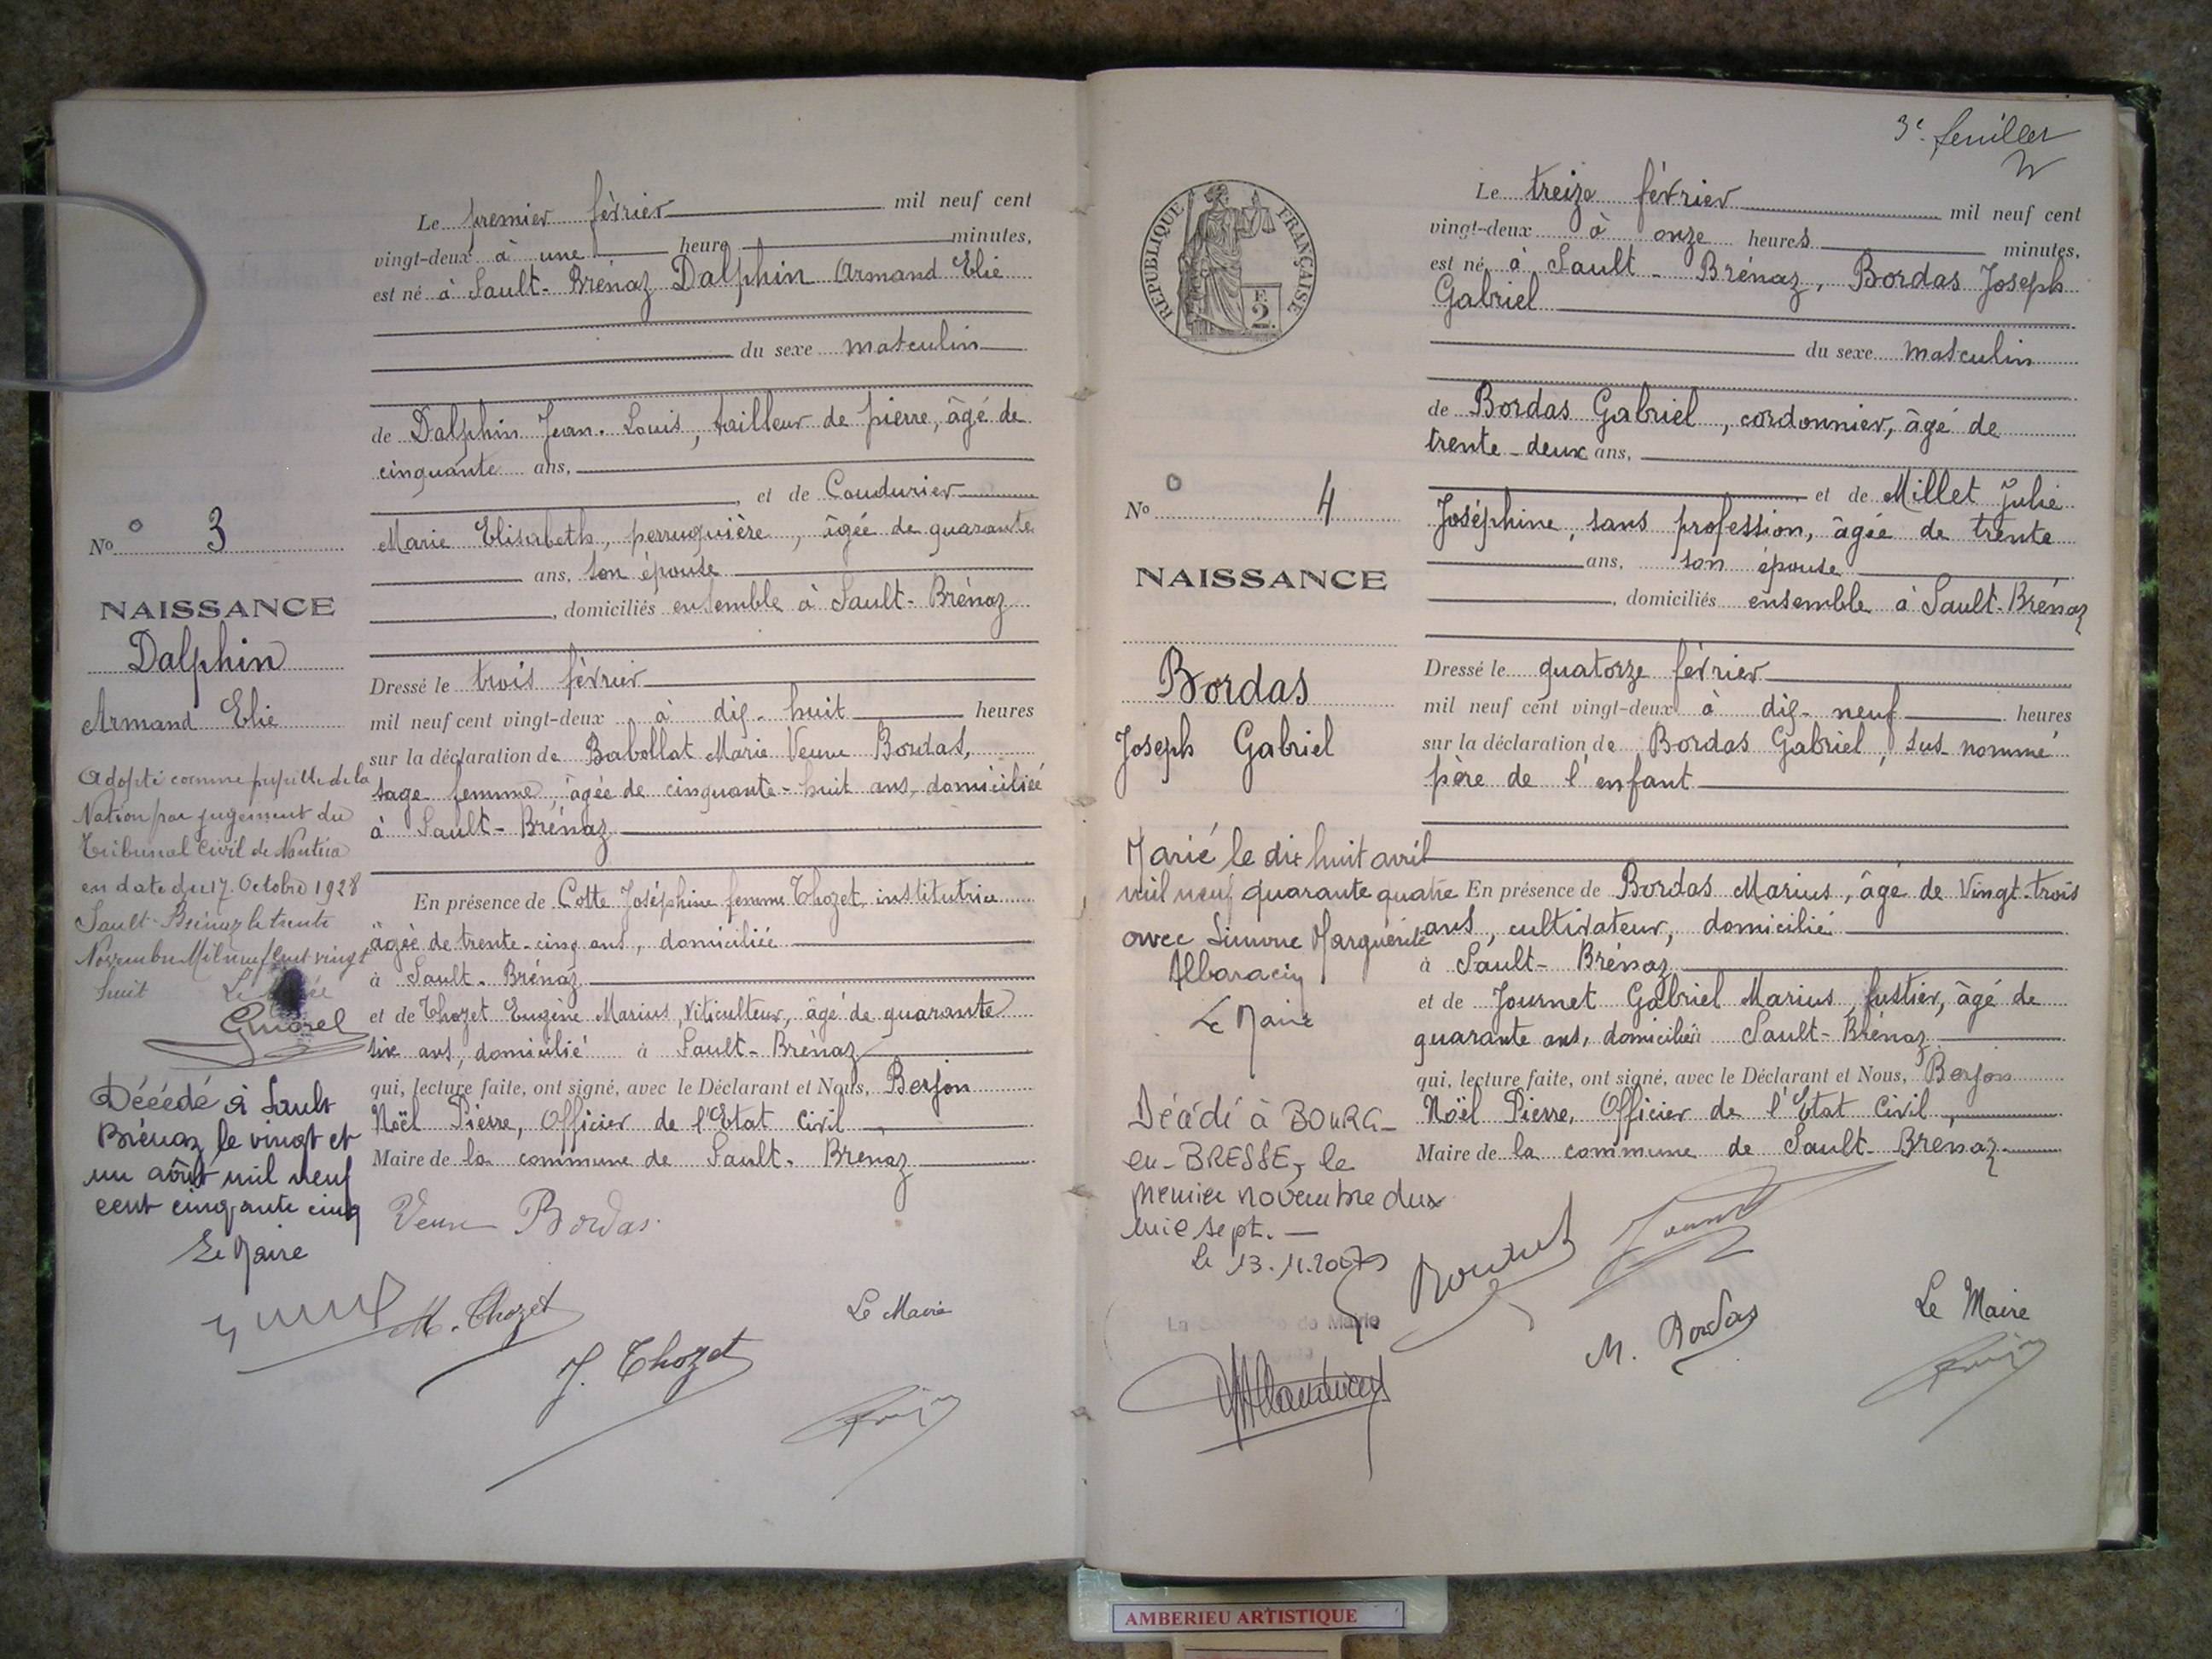 Le premier février mil neuf cent
vingt-deux à une heure minutes,
est né à Sault-Brénaz Dalphin Armand Elie
du sexe masculin
de Dalphin Jean-Louis, tailleur de pierre, âgé de
cinquante ans,
et de Coudurier
Marie Elisabeth, perruquière, âgée de quarante
ans, son épouse
, domiciliés ensemble à Sault-Brénaz
Dressé le trois février
mil neuf cent vingt-deux à dix-huit heures
sur la déclaration de Babollat Marie Veuve Bordas,
sage femme, âgée de cinquante-huit ans, domiciliée
à Sault-Brénaz
En présence de Cotte Joséphine femme Thozet, institutrice
âgée de trente-cinq ans, domiciliée
à Sault-Brénaz
et de Thozet Eugène Marius, viticulteur, âgé de quarante
six ans, domicilié à Sault-Brénaz
qui, lecture faite, ont signé, avec le Déclarant et Nous, Berjon
Noël Pierre, Officier de l'Etat Civil
Maire de la commune de Sault-Brenaz
Veuve Bordas
M. Thozet
J. Thozet
Le Maire
No 3
NAISSANCE
Dalphin
Armand Elie
Adopté comme pupille de la
Nation par jugement du
Tribunal Civil de Nantua
en date du 17 Octobre 1928
Sault-Brénaz le trente
Novembre Mil neuf Cent vingt
huit Le
Décédé à Sault
Brénaz le vingt et
un août mil neuf
cent cinquante cinq
Le Maire
3e feuillet
REPUBLIQUE FRANÇAISE
F.
2.
Le treize février mil neuf cent
vingt-deux à onze heures minutes,
est né à Sault-Brénaz, Bordas Joseph
Gabriel
du sexe masculin
de Bordas Gabriel, cordonnier, âgé de
trente-deux ans,
et de Millet Julie
Joséphine, sans profession, âgée de trente
ans, son épouse
, domiciliés ensemble à Sault-Brénaz
Dressé le quatorze février
mil neuf cent vingt-deux à dix-neuf heures
sur la déclaration de Bordas Gabriel, sus-nommé
père de l'enfant
En présence de Bordas Marius, âgé de Vingt-trois
ans, cultivateur, domicilié
à Sault-Brénaz
et de Journet Gabriel Marius, fustier, âgé de
quarante ans, domicilié à Sault-Brénaz
qui, lecture faite, ont signé, avec le Déclarant et Nous, Berjon
Noël Pierre, Officier de l'Etat Civil,
Maire de la commune de Sault-Brénaz
M. Bordas
Le Maire
No 4
NAISSANCE
Bordas
Joseph Gabriel
Marié le dix huit avril
mil neuf quarante quatre
avec Simone Marguerite
Albaracin
Le Maire
Décédé à BOURG-
en-BRESSE, le
premier novembre deux
mille sept.
Le 13.11.2007
AMBERIEU ARTISTIQUE